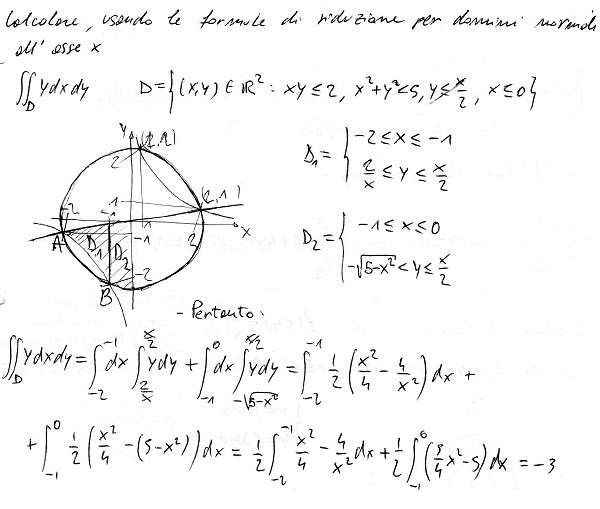 Calcolare, usando le formule di riduzione per domini normali
all'asse x
∬_D y dx dy   D = {(x,y) ∈ ℝ² : xy ≤ 2, x²+y² < 5, y ≤ x/2, x ≤ 0}
D₁ = { -2 ≤ x ≤ -1
2/x ≤ y ≤ x/2
D₂ = { -1 ≤ x ≤ 0
-√(5-x²) < y ≤ x/2
y (1,2)
2
1 (2,1)
-2 -1 x
A D₁ D₂ -1 2
-2
B
- Pertanto:
∬_D y dx dy = ∫_{-2}^{-1} dx ∫_{2/x}^{x/2} y dy + ∫_{-1}^{0} dx ∫_{-√(5-x²)}^{x/2} y dy = ∫_{-2}^{-1} 1/2 (x²/4 - 4/x²) dx +
+ ∫_{-1}^{0} 1/2 (x²/4 - (5-x²)) dx = 1/2 ∫_{-2}^{-1} x²/4 - 4/x² dx + 1/2 ∫_{-1}^{0} (5/4 x² - 5) dx = -3